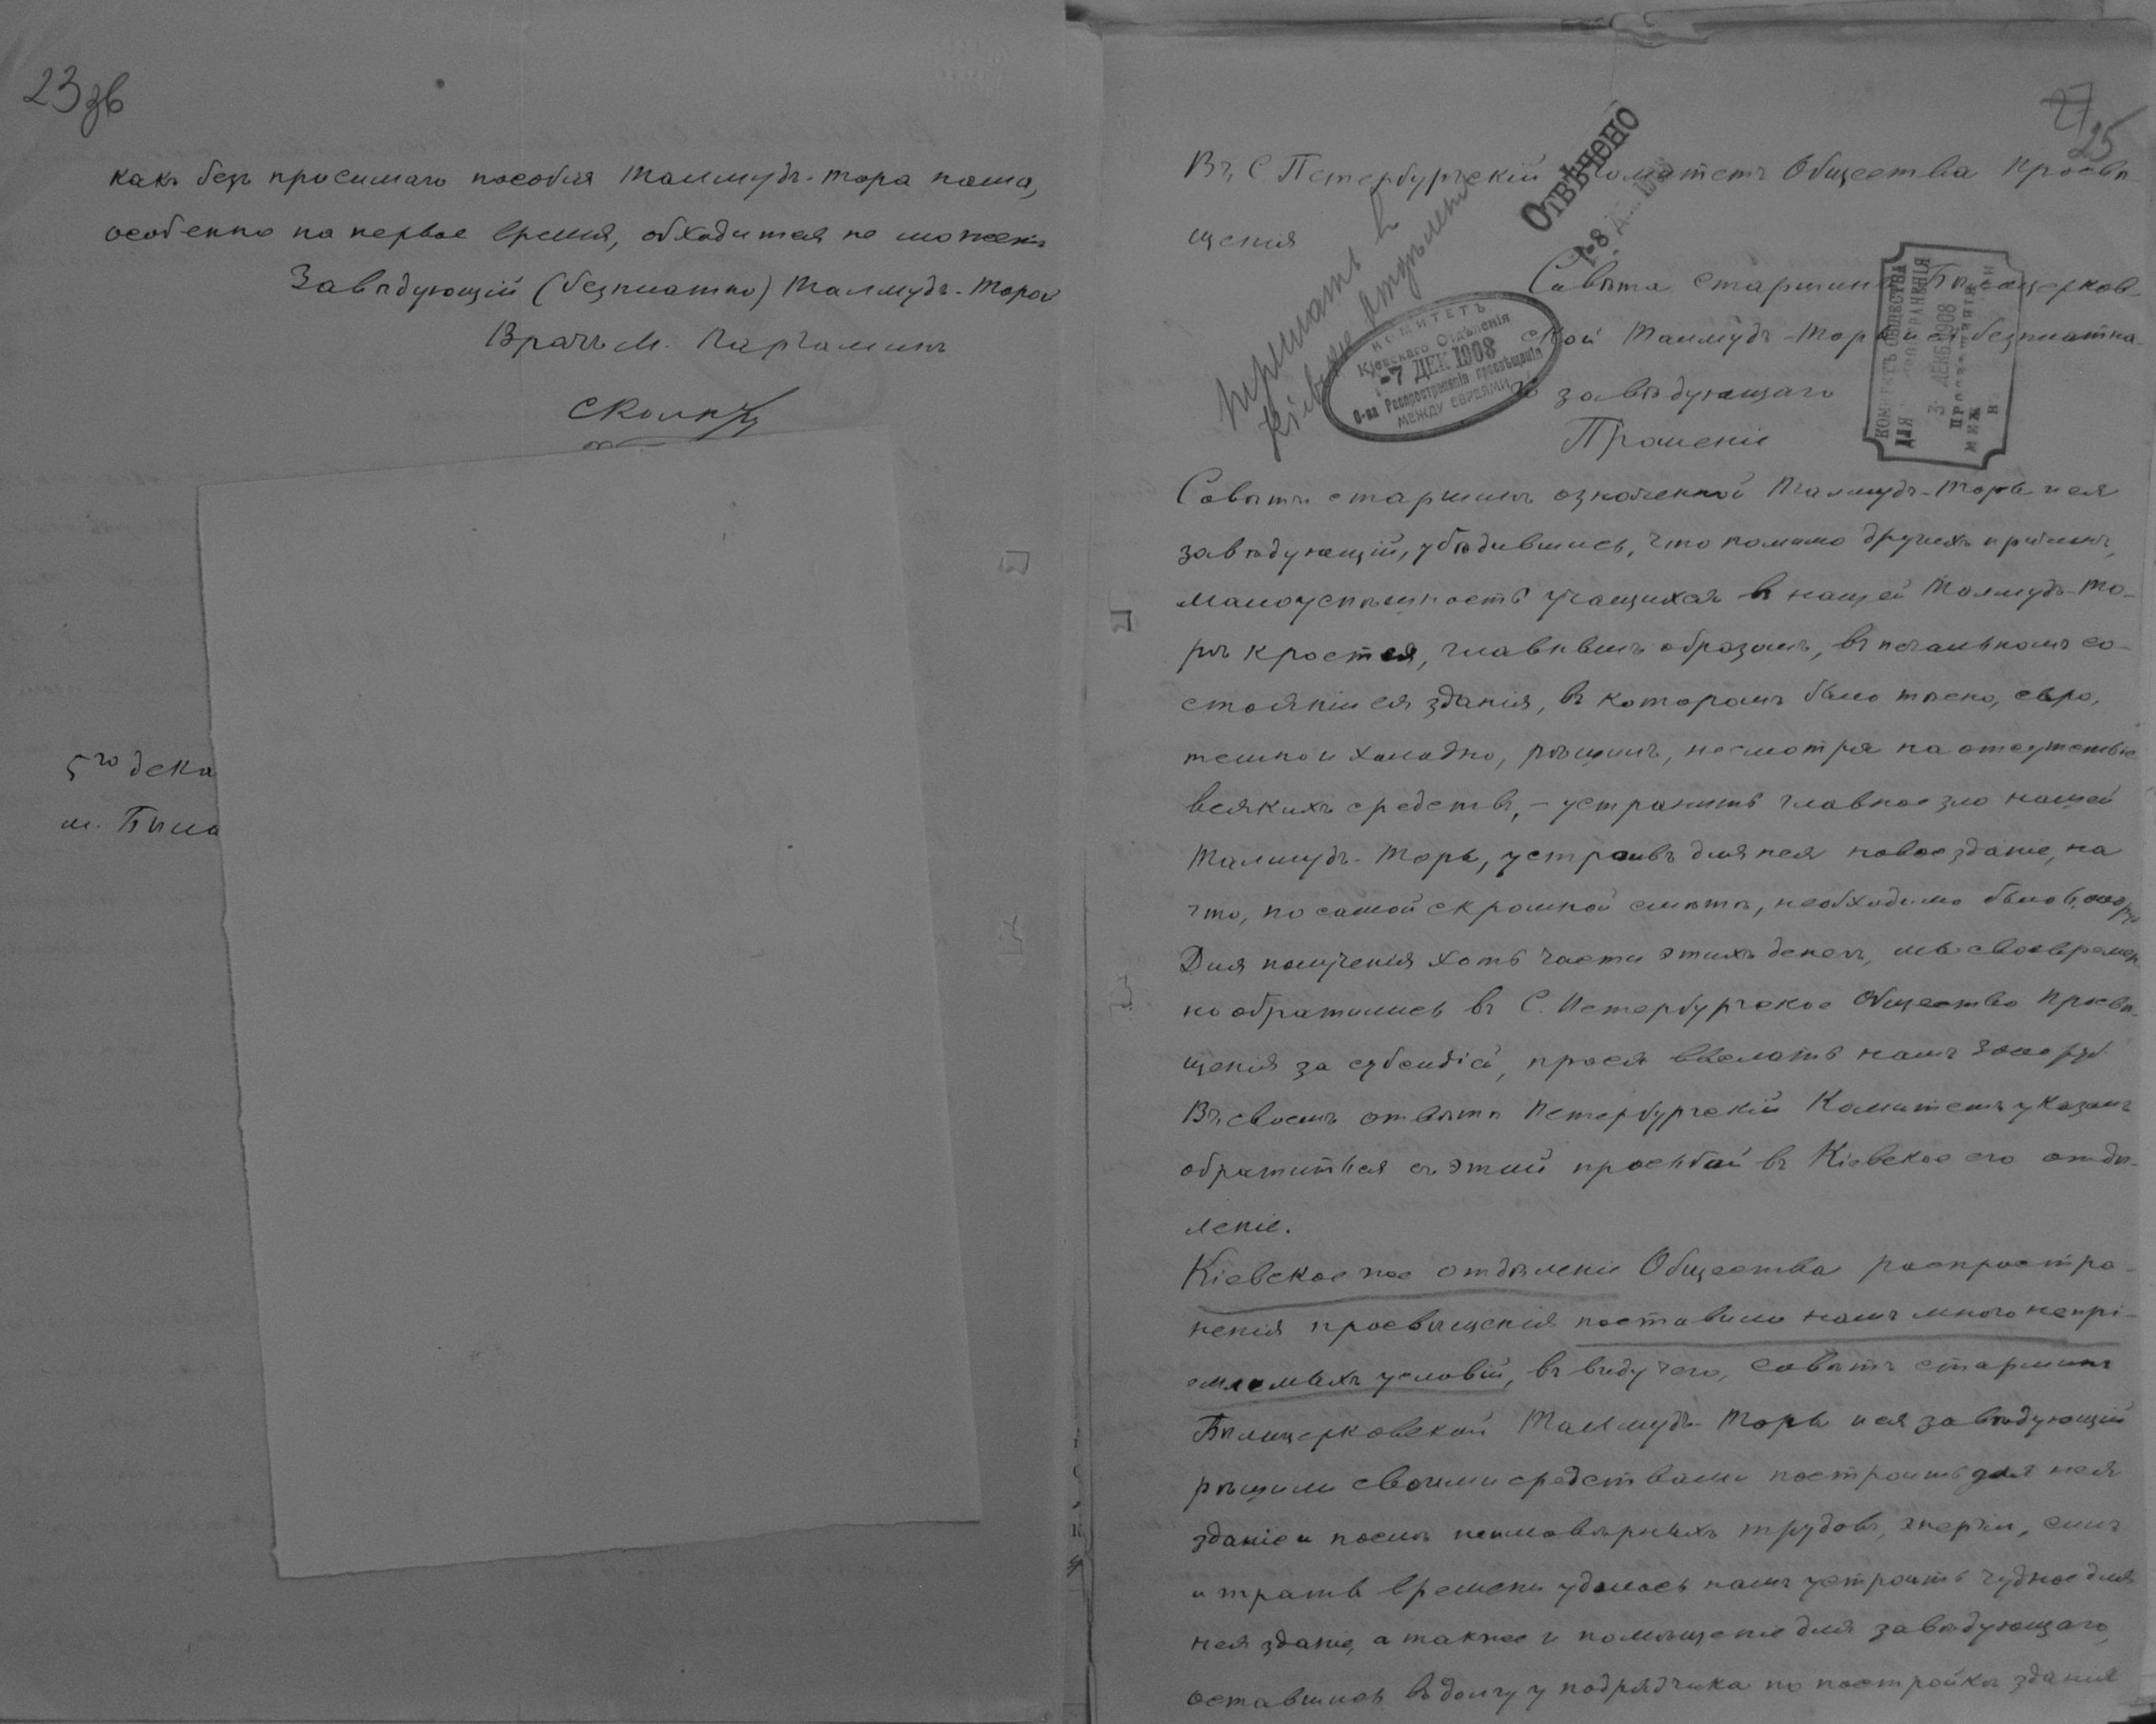 23 зв
какъ безъ просимаго пособія Талмудъ-Тора наша,
особенно на первое время, обходиться не можетъ
Завѣдующій (безплатно) Талмудъ-Торой
Врачъ М.
5го дека
м. Бѣла
27
25
Въ С. Петербургскій Комитетъ Общества Просвѣ-
щенія
ОТВѢЧЕНО
Совѣта старшинъ Бѣлоцерков-
ской Талмудъ-Торы и ея безплатна-
го завѣдующаго
Прошеніе
КОМИТЕТЪ
Кіевскаго Отдѣленія
-7 ДЕК 1908
О-ва Распространенія просвѣщенія
МЕЖДУ ЕВРЕЯМИ
КОМИТЕТЪ ОБЩЕСТВА
ДЛЯ РАСПРОСТРАНЕНІЯ
3 ДЕКБ 1908
Просвѣщенія
МЕЖ
Кіевское отдѣленіе
Совѣтъ старшинъ означенной Талмудъ-Торы и ея
завѣдующій, убѣдившись, что помимо другихъ причинъ,
малоуспѣшность учащихся въ нашей Талмудъ-То-
рѣ кроется, главнымъ образомъ, въ печальномъ со-
стояніи ея зданія, въ которомъ было тѣсно, сыро,
темно и холодно, рѣшилъ, несмотря на отсутствіе
всякихъ средствъ, - устранить главное зло нашей
Талмудъ-Торы, устроивъ для нея новое зданіе, на
что, по самой скромной смѣтѣ, необходимо было
Для полученія хоть части этихъ денегъ, мы своевремен-
но обратились въ С. Петербургское Общество Просвѣ-
щенія за субсидіей, прося выслать намъ руб.
Въ своемъ отвѣтѣ Петербургскій Комитетъ указалъ
обратиться съ этой просьбой въ Кіевское его отдѣ-
леніе.
Кіевское же отдѣленіе Общества распростра-
ненія просвѣщенія поставило намъ много непрі-
емлемыхъ условій, въ виду чего, совѣтъ старшинъ
Бѣлоцерковской Талмудъ-Торы и ея завѣдующій
рѣшили своими средствами построить для нея
зданіе и послѣ неимовѣрныхъ трудовъ, энергіи, силъ
и траты времени удалось намъ устроить чудное для
нея зданіе, а также и помѣщеніе для завѣдующаго,
оставшись въ долгу у подрядчика по постройкѣ зданія